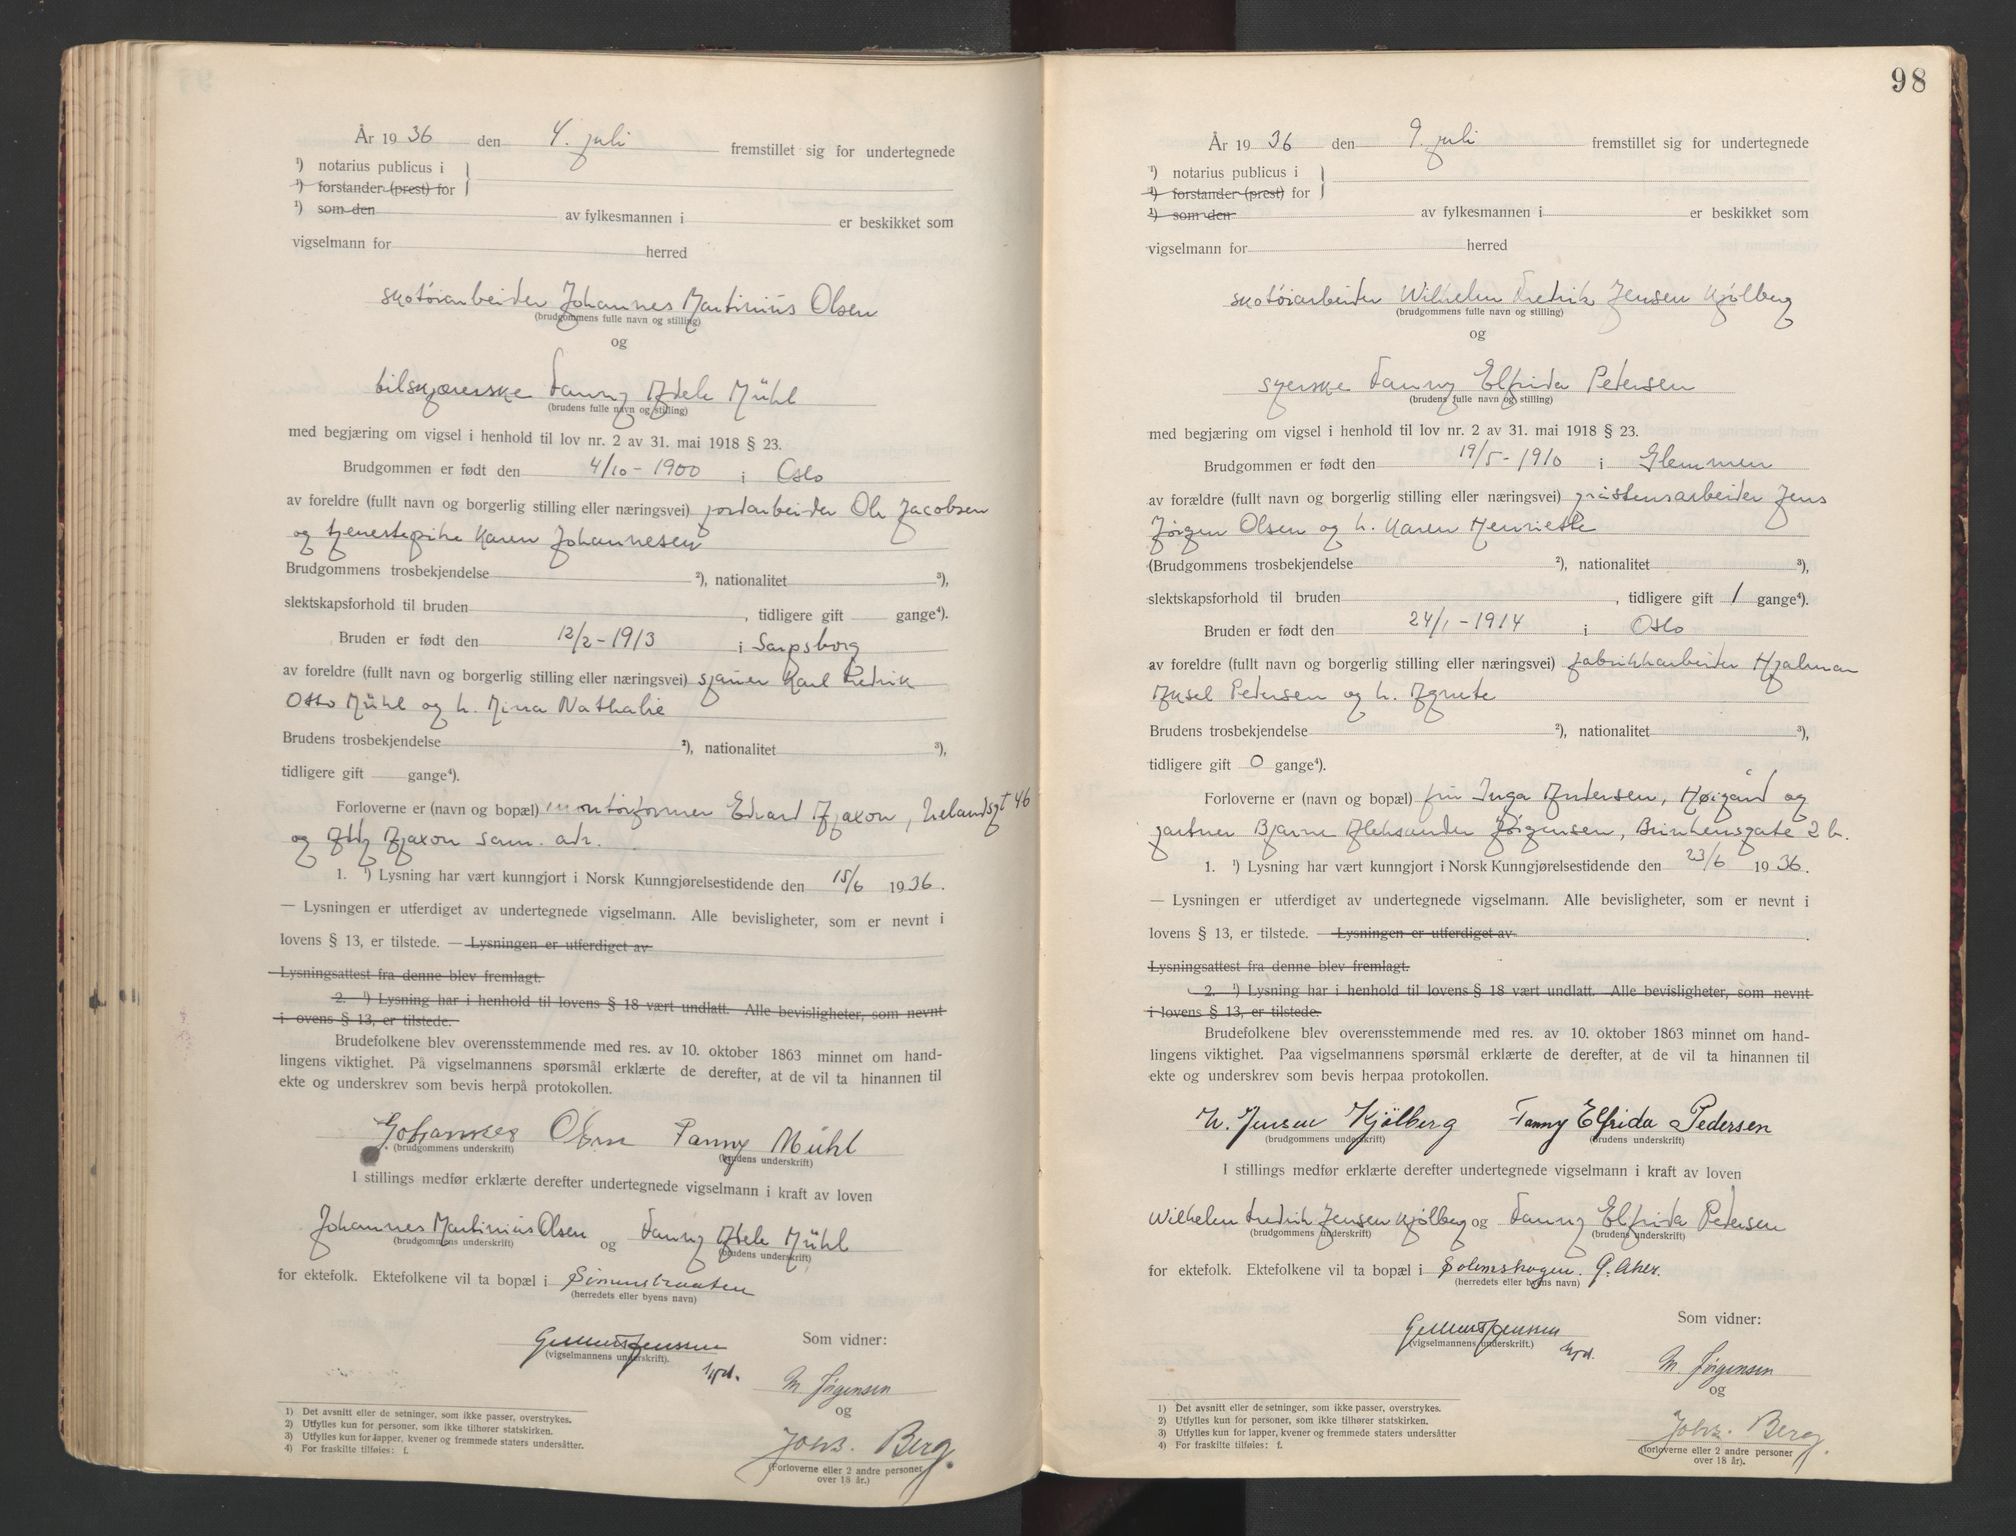 År 1936 den 4. juli fremstillet sig for undertegnede
¹) notarius publicus i
¹) forstander (prest) for
¹) som den av fylkesmannen i er beskikket som
vigselmann for herred
skotøiarbeider Johannes Martinius Olsen
(brudgommens fulle navn og stilling)
og
tilskjærerske Fanny Adele Mühl
(brudens fulle navn og stilling)
med begjæring om vigsel i henhold til lov nr. 2 av 31. mai 1918 § 23.
Brudgommen er født den 4/10 - 1900 i Oslo
av foreldre (fullt navn og borgerlig stilling eller næringsvei) jordarbeider Ole Jacobsen
og tjenestepike Karen Johannesen
Brudgommens trosbekjendelse ²), nationalitet ³),
slektskapsforhold til bruden , tidligere gift gange⁴).
Bruden er født den 12/2 - 1913 i Sarpsborg
av foreldre (fullt navn og borgerlig stilling eller næringsvei) sjauer Karl Fredrik
Otto Mühl og h. Mina Nathalie
Brudens trosbekjendelse ²), nationalitet ³),
tidligere gift gange⁴).
Forloverne er (navn og bopæl) montørformer Edvard Ajaxon, Uelandsgt 46
og Ajaxon sam. adr.
1. ¹) Lysning har vært kunngjort i Norsk Kunngjørelsestidende den 15/6 1936.
— Lysningen er utferdiget av undertegnede vigselmann. Alle bevisligheter, som er nevnt i
lovens § 13, er tilstede. — Lysningen er utferdiget av
Lysningsattest fra denne blev fremlagt.
2. ¹) Lysning har i henhold til lovens § 18 vært undlatt. Alle bevisligheter, som nevnt
i ovens § 13, er tilstede.
Brudefolkene blev overensstemmende med res. av 10. oktober 1863 minnet om hand-
lingens viktighet. På vigselmannens spørsmål erklærte de derefter, at de vil ta hinannen til
ekte og underskrev som bevis herpå protokollen.
Johannes Olsen Fanny Mühl
(brudgommens underskrift) (brudens underskrift)
I stillings medfør erklærte derefter undertegnede vigselmann i kraft av loven
Johannes Martinius Olsen og Fanny Adele Mühl
(brudgommens underskrift) (brudens underskrift)
for ektefolk. Ektefolkene vil ta bopæl i Simenstraaten
(herredets eller byens navn)
Som vidner:
(vigselmannens underskrift).
M. Jørgensen
og
Johs. Berg.
(Forloverne eller 2 andre personer
over 18 år.)
1) Det avsnitt eller de setninger, som ikke passer, overstrykes.
2) Utfylles kun for personer, som ikke tilhører statskirken.
3) Utfylles kun for lapper, kvener og fremmede staters undersåtter.
4) For fraskilte tilføies: f.
98
År 1936 den 9. juli fremstillet sig for undertegnede
¹) notarius publicus i
¹) forstander (prest) for
¹) som den av fylkesmannen i er beskikket som
vigselmann for herred
skotøiarbeider Wilhelm Fredrik Jensen Kjølberg
(brudgommens fulle navn og stilling)
og
syerske Fanny Elfrida Petersen
(brudens fulle navn og stilling)
med begjæring om vigsel i henhold til lov nr. 2 av 31. mai 1918 § 23.
Brudgommen er født den 19/5 - 1910 i Glemmen
av forældre (fullt navn og borgerlig stilling eller næringsvei) gråstensarbeider Jens
Jørgen Olsen og h. Karen Henriette
(Brudgommens trosbekjendelse ²), nationalitet ³),
slektskapsforhold til bruden , tidligere gift 1 gange⁴).
Bruden er født den 24/1 - 1914 i Oslo
av foreldre (fullt navn og borgerlig stilling eller næringsvei) fabrikkarbeider Hjalmar
Aksel Pedersen og h. Agnete
Brudens trosbekjendelse ²), nationalitet ³),
tidligere gift 0 gange⁴).
Forloverne er (navn og bopæl) fru Inga Andersen, Høigård og
gartner Bjarne Aleksander Jørgensen, Brinkensgate 2 b.
1. ¹) Lysning har vært kunngjort i Norsk Kunngjørelsestidende den 23/6 1936.
— Lysningen er utferdiget av undertegnede vigselmann. Alle bevisligheter, som er nevnt i
lovens § 13, er tilstede. — Lysningen er utferdiget av .
Lysningsattest fra denne blev fremlagt.
2. ¹) Lysning har i henhold til lovens § 18 vært undlatt. Alle bevisligheter, som nevnt
i lovens § 13, er tilstede.
Brudefolkene blev overensstemmende med res. av 10. oktober 1863 minnet om hand-
lingens viktighet. Paa vigselmannens spørsmål erklærte de derefter, at de vil ta hinannen til
ekte og underskrev som bevis herpaa protokollen.
W. Jensen Kjölberg Fanny Elfrida Pedersen
(brudgommens underskrift) (brudens underskrift)
I stillings medfør erklærte derefter undertegnede vigselmann i kraft av loven
Wilhelm Fredrik Jensen Kjølberg og Fanny Elfrida Petersen
(brudgommens underskrift) (brudens underskrift)
for ektefolk. Ektefolkene vil ta bopæl i Solemskogen. Ø. Aker.
(herredets eller byens navn)
Som vidner:
(vigselmannens underskrift.)
M. Jørgensen
og
Johs. Berg.
(forloverne eller 2 andre personer
over 18 år).
1) Det avsnitt eller de setninger, som ikke passer, overstrykes.
2) Utfylles kun for personer, som ikke tilhører statskirken.
3) Utfylles kun for lapper, kvener og fremmede staters undersåtter
4) For fraskilte tilføies: f.